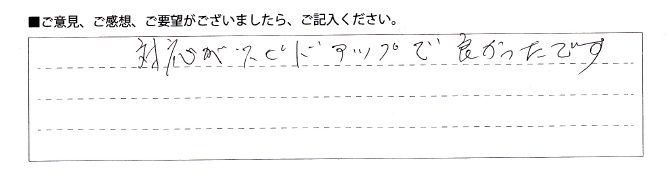 ■ご意見、ご感想、ご要望がございましたら、ご記入ください。
対応がスピドアップで良かったです